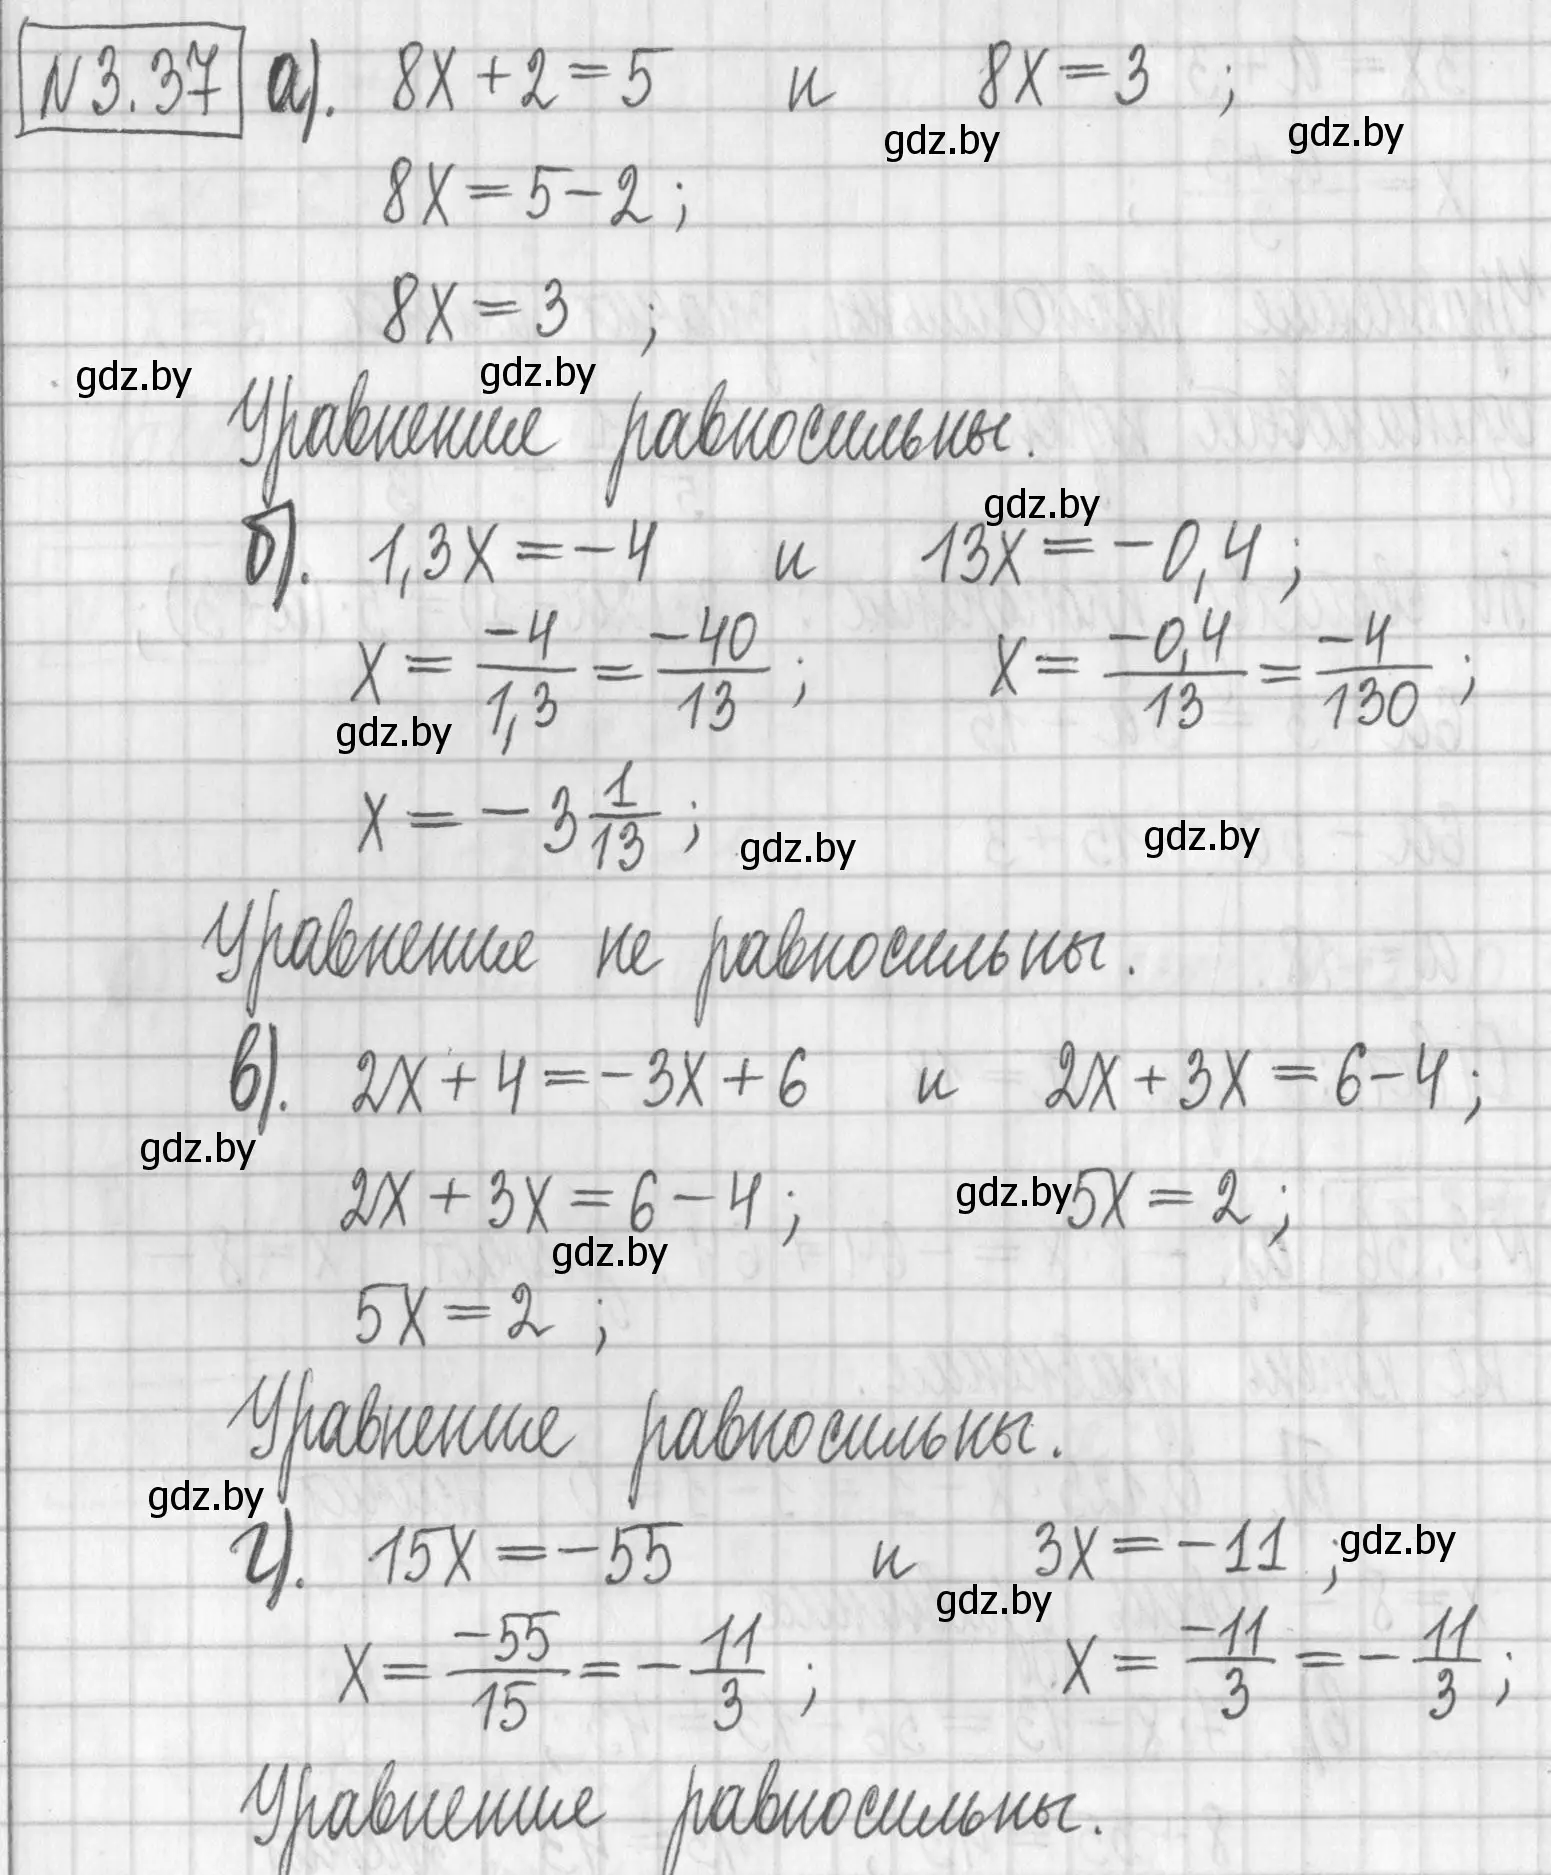 N 3.37 а). 8x + 2 = 5 и 8x = 3 ;
gdz.by gdz.by
8x = 5 - 2 ;
8x = 3 ;
gdz.by gdz.by
Уравнение равносильны.
gdz.by
б). 1,3x = -4 и 13x = -0,4 ;
x = -4/1,3 = -40/13 ; x = -0,4/13 = -4/130 ;
gdz.by
x = -3 1/13 ;
gdz.by gdz.by
Уравнение не равносильны.
в). 2x + 4 = -3x + 6 и 2x + 3x = 6 - 4 ;
gdz.by
2x + 3x = 6 - 4 ; gdz.by 5x = 2 ;
gdz.by
5x = 2 ;
Уравнение равносильны.
gdz.by
г). 15x = -55 и 3x = -11 ; gdz.by
gdz.by
x = -55/15 = - 11/3 ; x = -11/3 = - 11/3 ;
Уравнение равносильны.